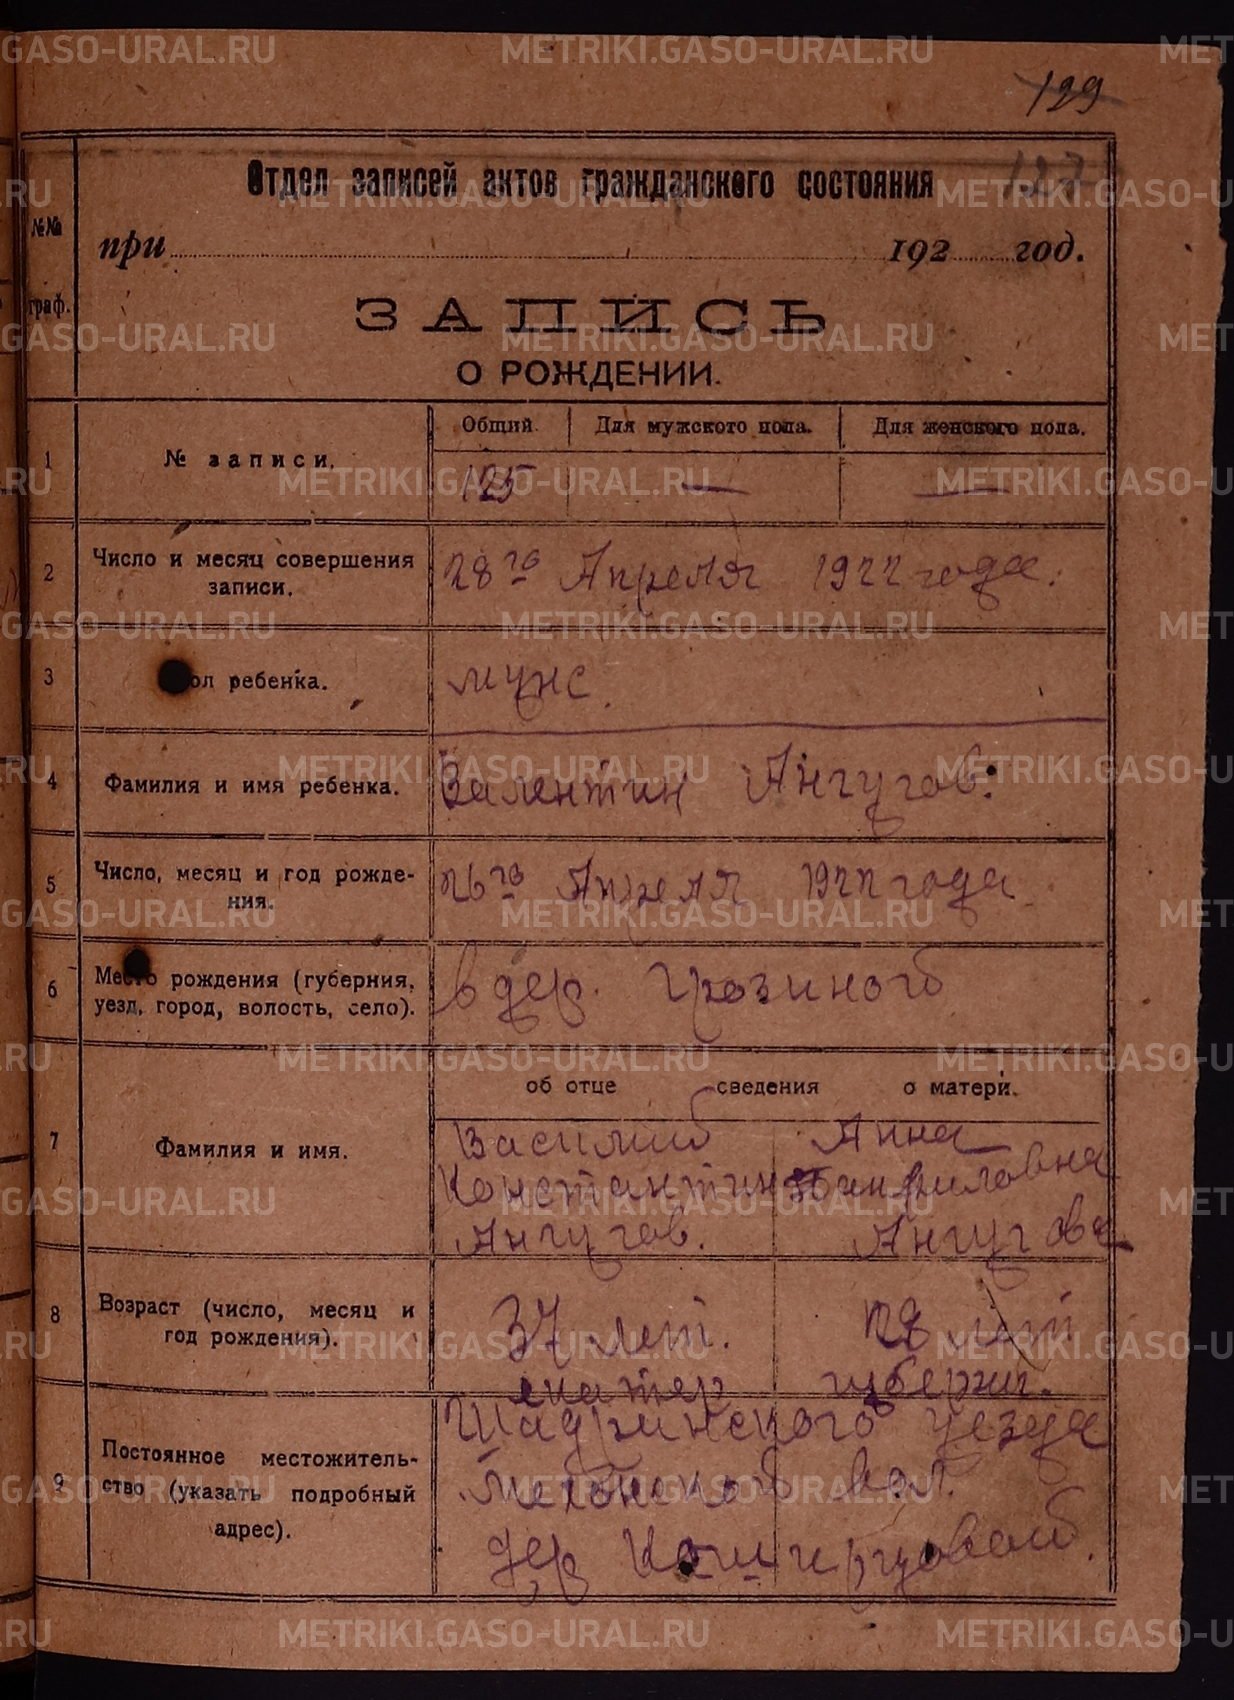 199
127
Отдел записей актов гражданского состояния
№№ граф.
при 192 год.
ЗАПИСЬ
О РОЖДЕНИИ.
1
№ записи.
Общий.
Для мужского пола.
Для женского пола.
125 — —
2
Число и месяц совершения
записи.
28го Апреля 1922 года.
3
ол ребенка.
мужс.
4
Фамилия и имя ребенка.
Валентин Ангугов.
5
Число, месяц и год рожде-
ния.
26го Апреля 1922 года
6
Место рождения (губерния,
уезд, город, волость, село).
в дер. Грозиной
об отце сведения о матери.
7
Фамилия и имя.
Василий
Константин
Ангугов.
Анна
Панфиловна
Ангугова
8
Возраст (число, месяц и
год рождения).
37 лет.
28 лет
9
Постоянное местожитель-
ство (указать подробный
адрес).
екатер губерни.
Шадринского уезда
Мехонской вол.
дер
METRIKI.GASO-URAL.RU